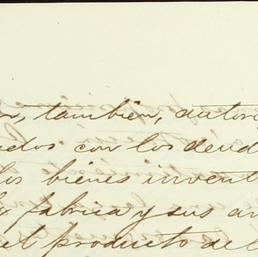 también, autori
con los deud
los bienes invent
fabrica y sus an
el producto de l